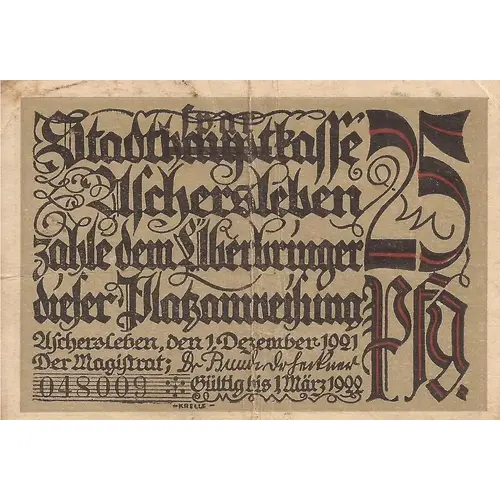 Stadthauptkasse
Aschersleben
zahle dem Überbringer
dieser Platzanweisung
Aschersleben, den 1. Dezember 1921
Der Magistrat: Dr.
048009
Gültig bis 1. März 1922
25
Pfg.